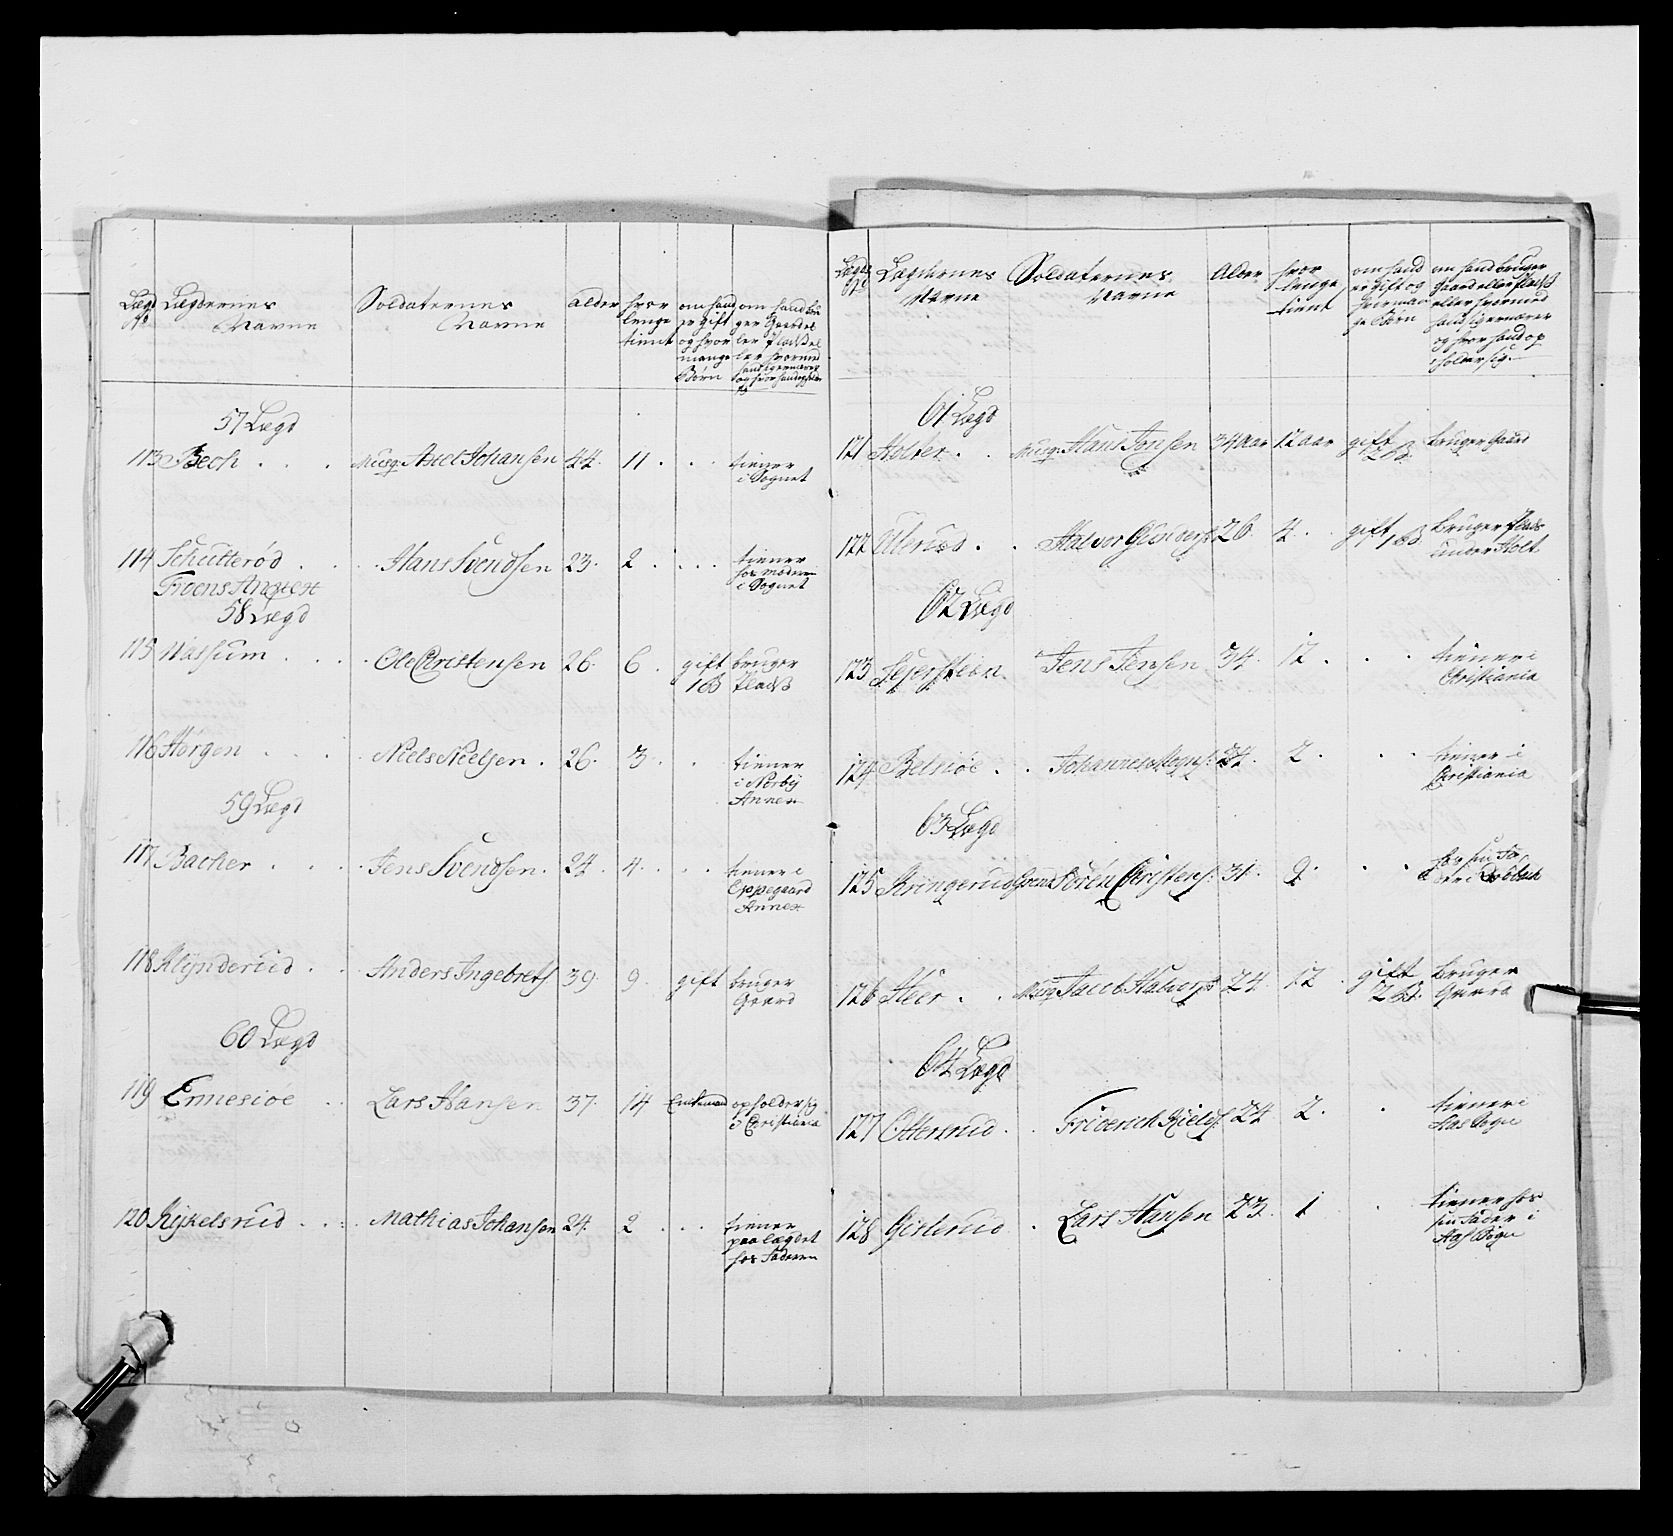 Lægd No Lægdernes Navne Soldaternes Navne alder hvor lenge tient om hand er gift og hvor mange Børn om hand bruger Gaard eller Plads eller hvormed hand sig ernærer og hvor hand opholder sig
57 Lægd
113 Bech . . . Musq: Axel Johansen 44. 11 . . . tiener i Sognet
114 Schutterød . . . Hans Svendsen 23. 2 . . . . tiener hos moderen i Sognet
Froens Annext
58 Lægd
115 Nassum . . . . Ole Christensen 26. 6. gift 1 B bruger Plads
116 Hørgen . . . Niels Nielsen . 26. 3. . . tiener i Nesby Annex
59 Lægd
117 Bacher . . . . Jens Svendsen . 24. 4. . . . tiener i Oppegaard Annex
118 Klynderud . . Anders Ingebrets 39. 9. gift bruger Gaard
60 Lægd
119 Ermesioe . . Lars Hansen 37. 14 Enkemand opholder sig i Christiania
120 Kykelsrud . . . Mathias Johansen 24. 2 . . . tiener paa lægdet hos Faderen
Lægds No Lægdernes Navne Soldaternes Navne Alder hvor lenge tient om hand er gift og hvor mange Børn om hand bruger Gaard eller Plads eller hvormed hand sig ernærer og hvor hand opholder sig.
61 Lægd
121 Holter . . Musq: Hans Jonsen 34 aar 12 aar gift 2 B. bruger Gaard
122 Ullerud . . Halvor Gunders: 26. 4. . gift 1 B. bruger Plads under Holt
62 Lægd
123 Fejerstien Jens Jensen 34. 12 . . . tiener i Christiania
124 Belsiøe . . Johannes 24. 2 . . . tiener i Christiania
63 Lægd
125 Kringerud Søren Christens: 31. 9. . . hos sin
126 Heer . . Musq: Jacob Halvors 24. 12 . gift 2 B. bruger Gaard
64 Lægd
127 Ottersrud . . Friderich 24 2. . tiener i Aas Sogn
128 Girlerud . Lars Hansen 23. 1 . tiener hos sin Fader i Aas Sogn